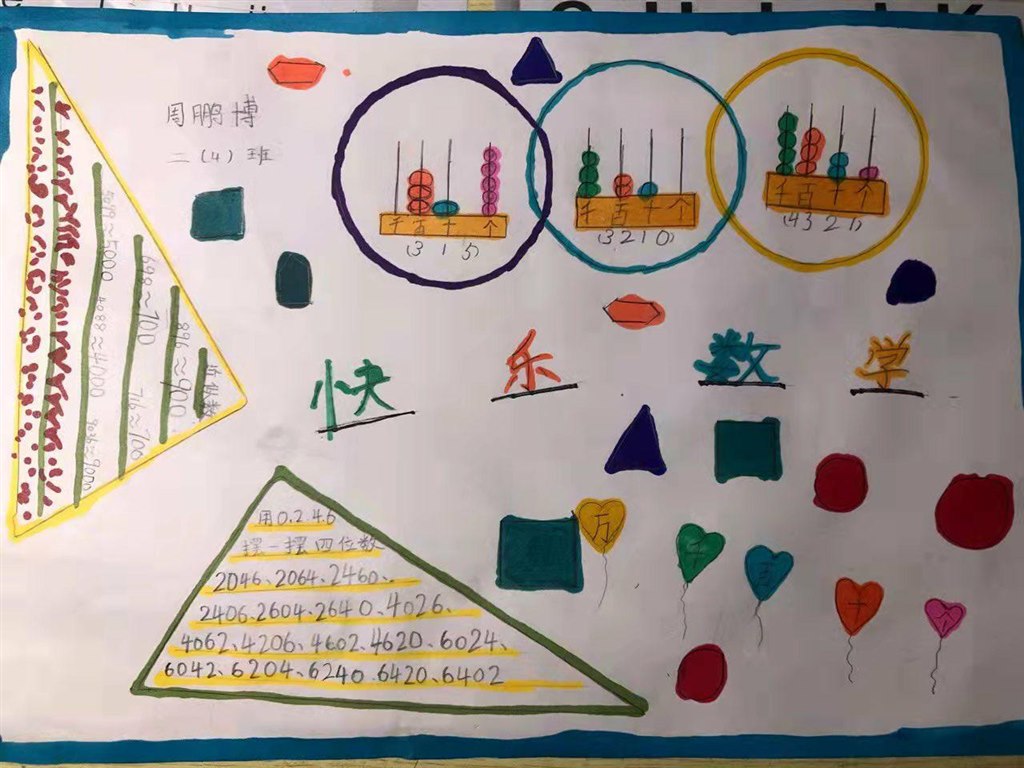 周鹏博
二（4）班
千百十个
（3 1 5）
千百十个
（3 2 1 0）
千百十个
（4 3 2 1）
快乐数学
近似数
896≈900
698≈700
716≈700
≈5000
≈4000
≈9000
用0.2.4.6
摆一摆四位数
2046、2064、2460、
2406、2604、2640、4026、
4062、4206、4602、4620、6024、
6042、6204、6240、6420、6402
万
千
百
十
个